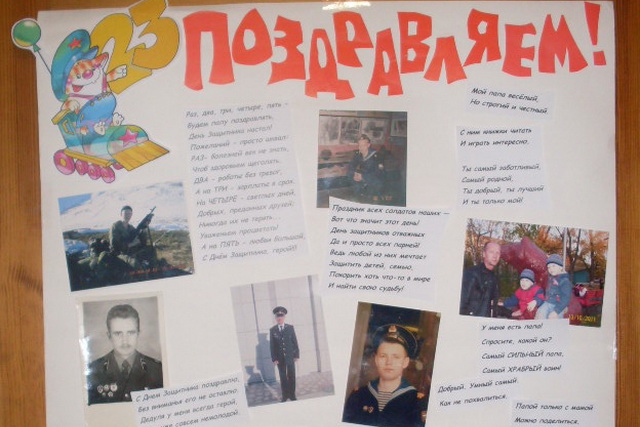 23
ПОЗДРАВЛЯЕМ!
Раз, два, три, четыре, пять –
Будем папу поздравлять,
День Защитника настал!
Пожеланий – просто шквал:
РАЗ- болезней век не знать,
Чтоб здоровьем щеголять.
ДВА – работы без тревог,
А на ТРИ – зарплаты в срок.
На ЧЕТЫРЕ – светлых дней,
Добрых, преданных друзей,
Никогда их не терять
Уважением процветать!
А на ПЯТЬ – любви большой,
С Днём Защитника, герой!
Мой папа весёлый,
Но строгий и честный.
С ним книжки читать
И играть интересно.
Ты самый заботливый,
Самый родной,
Ты добрый, ты лучший
И ты только мой!
Праздник всех солдатов наших –
Вот что значит этот день!
День защитников отважных
Да и просто всех парней!
Ведь любой из них мечтает
Защитить детей, семью,
Покорить хоть что-то в мире
И найти свою судьбу!
У меня есть папа!
Спросите, какой он?
Самый СИЛЬНЫЙ папа,
Самый ХРАБРЫЙ воин!
Добрый, Умный самый
Как не похвалиться.
Папой только с мамой
Можно поделиться.
С Днем Защитника поздравлю,
Без вниманья его не оставлю
Дедуля у меня всегда герой,
совсем немолодой.